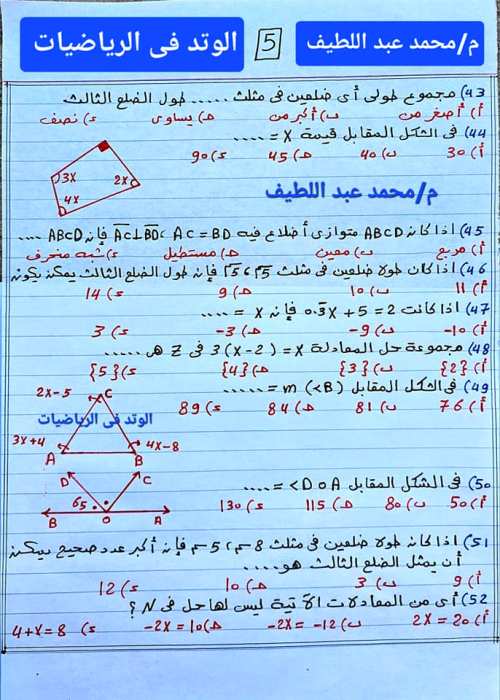 م/محمد عبد اللطيف
5
الوتد فى الرياضيات
43) مجموع طولى أى ضلعين فى مثلث ..... طول الضلع الثالث
أ) أصغر من ب) أكبر من حـ) يساوى ء) نصف
44) فى الشكل المقابل قيمة X = ....
أ) 30 ب) 40 حـ) 45 ء) 90
3X
2X
4X
م/محمد عبد اللطيف
45) اذا كان ABCD متوازى أضلاع فيه AC = BD ، AC ⊥ BD فإن ABCD ....
أ) مربع ب) معين حـ) مستطيل ء) شبه منحرف
46) اذا كان طولا ضلعين فى مثلث 5 ، 5 فإن طول الضلع الثالث يمكن يكون
أ) 11 ب) 10 حـ) 9 ء) 14
47) اذا كانت 0.3X + 5 = 2 فإن X = ....
أ) -10 ب) -9 حـ) -3 ء) 3
48) مجموعة حل المعادلة 3(X-2) = X فى Z هى .....
أ) {2} ب) {3} حـ) {4} ء) {5}
49) فى الشكل المقابل m(<B) = .....
أ) 76 ب) 81 حـ) 84 ء) 89
2X-5
C
الوتد فى الرياضيات
3X+4
4X-8
A
B
50) فى الشكل المقابل <DOA = ....
أ) 50 ب) 80 حـ) 115 ء) 130
D
C
65
B
O
A
51) اذا كان طولا ضلعين فى مثلث 8 سم ، 5 سم فإن أكبر عدد صحيح يمكن
أن يمثل الضلع الثالث هو ....
أ) 9 ب) 3 حـ) 10 ء) 12
52) أى من المعادلات الآتية ليس لها حل فى N ؟
أ) 2X = 20 ب) -2X = -12 حـ) -2X = 10 ء) 4+X = 8